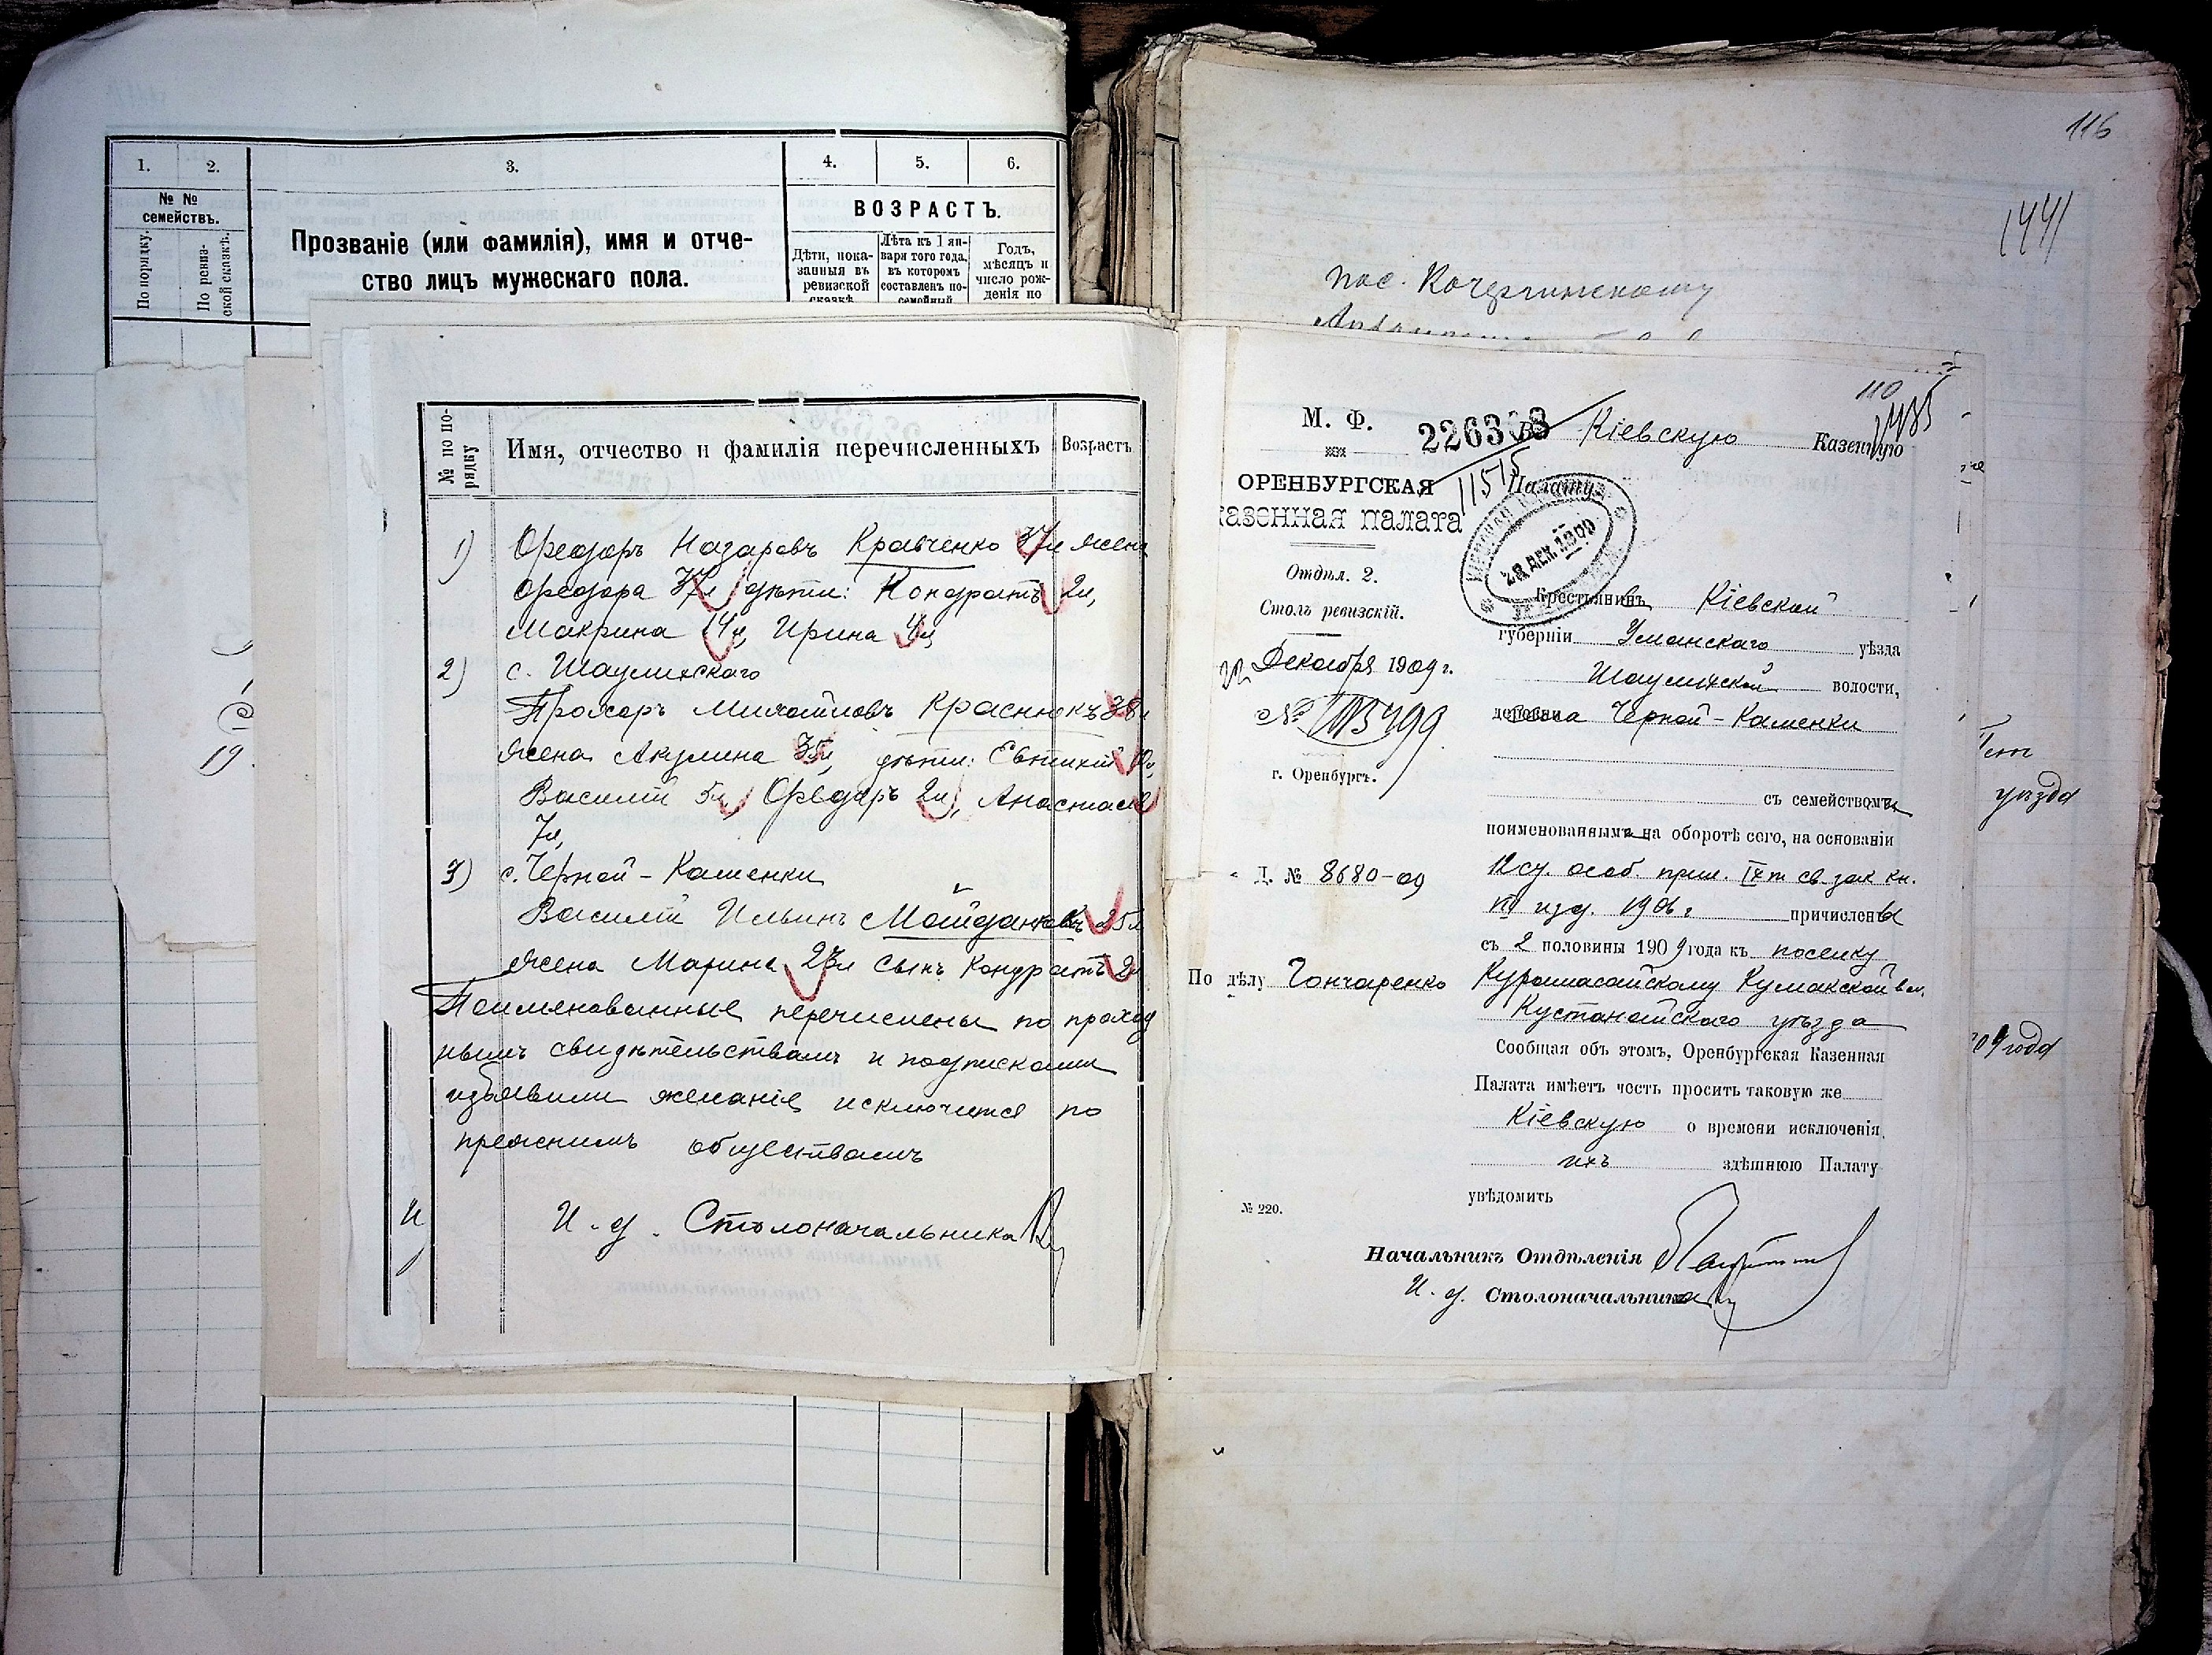 1. 2. 3. 4. 5. 6.
№ № семействъ.
По порядку.
По ревизской сказкѣ.
Прозваніе (или фамилія), имя и отче-
ство лицъ мужескаго пола.
ВОЗРАСТЪ.
Дѣти, пока-
занныя въ
ревизской
сказкѣ
Лѣта къ 1 ян-
варя того года,
въ которомъ
составленъ по-
семейный
Годъ,
мѣсяцъ и
число рож-
денія по
19
№ по по-
рядку
Имя, отчество и фамилія перечисленныхъ
Возрастъ
1) Ѳедоръ Назаровъ Кравченко 37л жена
Ѳедора 37л дѣти: Кондратъ 2л,
Макрина 14л, Ирина 4л,
2) с. Шаулихскаго
Прохоръ Михайловъ Краснюкъ 38л
жена Акулина 35л, дѣти: Евтихій 10л,
Василій 5л, Ѳедоръ 2л, Анастасія
7л,
3) с. Черной-Каменки
Василій Ильинъ Майданюкъ 25л
жена Марина 23л сынъ Кондратъ 2л
Поименованные перечислены по проход
нымъ свидѣтельствамъ и подписками
изъявили желаніе исключится по
прежнимъ обществамъ
И. д. Столоначальника
116
1441
пос. Кочергинскому
110
М. Ф.
226308
Въ Кіевскую Казенную
1515
Палату
ОРЕНБУРГСКАЯ
КАЗЕННАЯ ПАЛАТА
28 ДЕК 1909
Отдѣл. 2.
Столъ ревизскій.
22 Декабря 1909 г.
№ 113499
г. Оренбургъ.
Крестьянинъ Кіевской
губерніи Уманскаго уѣзда
Шаулихской волости,
деревни Черной-Каменки
съ семействомъ
поименованным на оборотѣ сего, на основаніи
Д. № 8680-09
12 ст. особ. прил. IX т св. зак кн.
VII изд. 1906 г причислены
съ 2 половины 1909 года къ поселку
По дѣлу Гончаренко
Курашасайскому Кумакской вол.
Кустанайскаго уѣзда
Сообщая объ этомъ, Оренбургская Казенная
Палата имѣетъ честь просить таковую же
Кіевскую о времени исключенія
ихъ здѣшнюю Палату
увѣдомить
№ 220.
Начальникъ Отдѣленія
И. д. Столоначальника
уѣзда
09 года